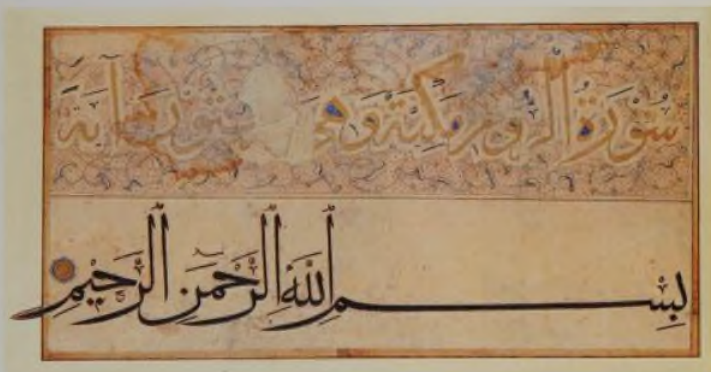 سُوْرَةُ الرُّومِ مَكِّيَّةٌ وَهِيَ سِتُّوْنَ آيَةً
بِسْمِ ٱللَّهِ ٱلرَّحْمَنِ ٱلرَّحِيمِ